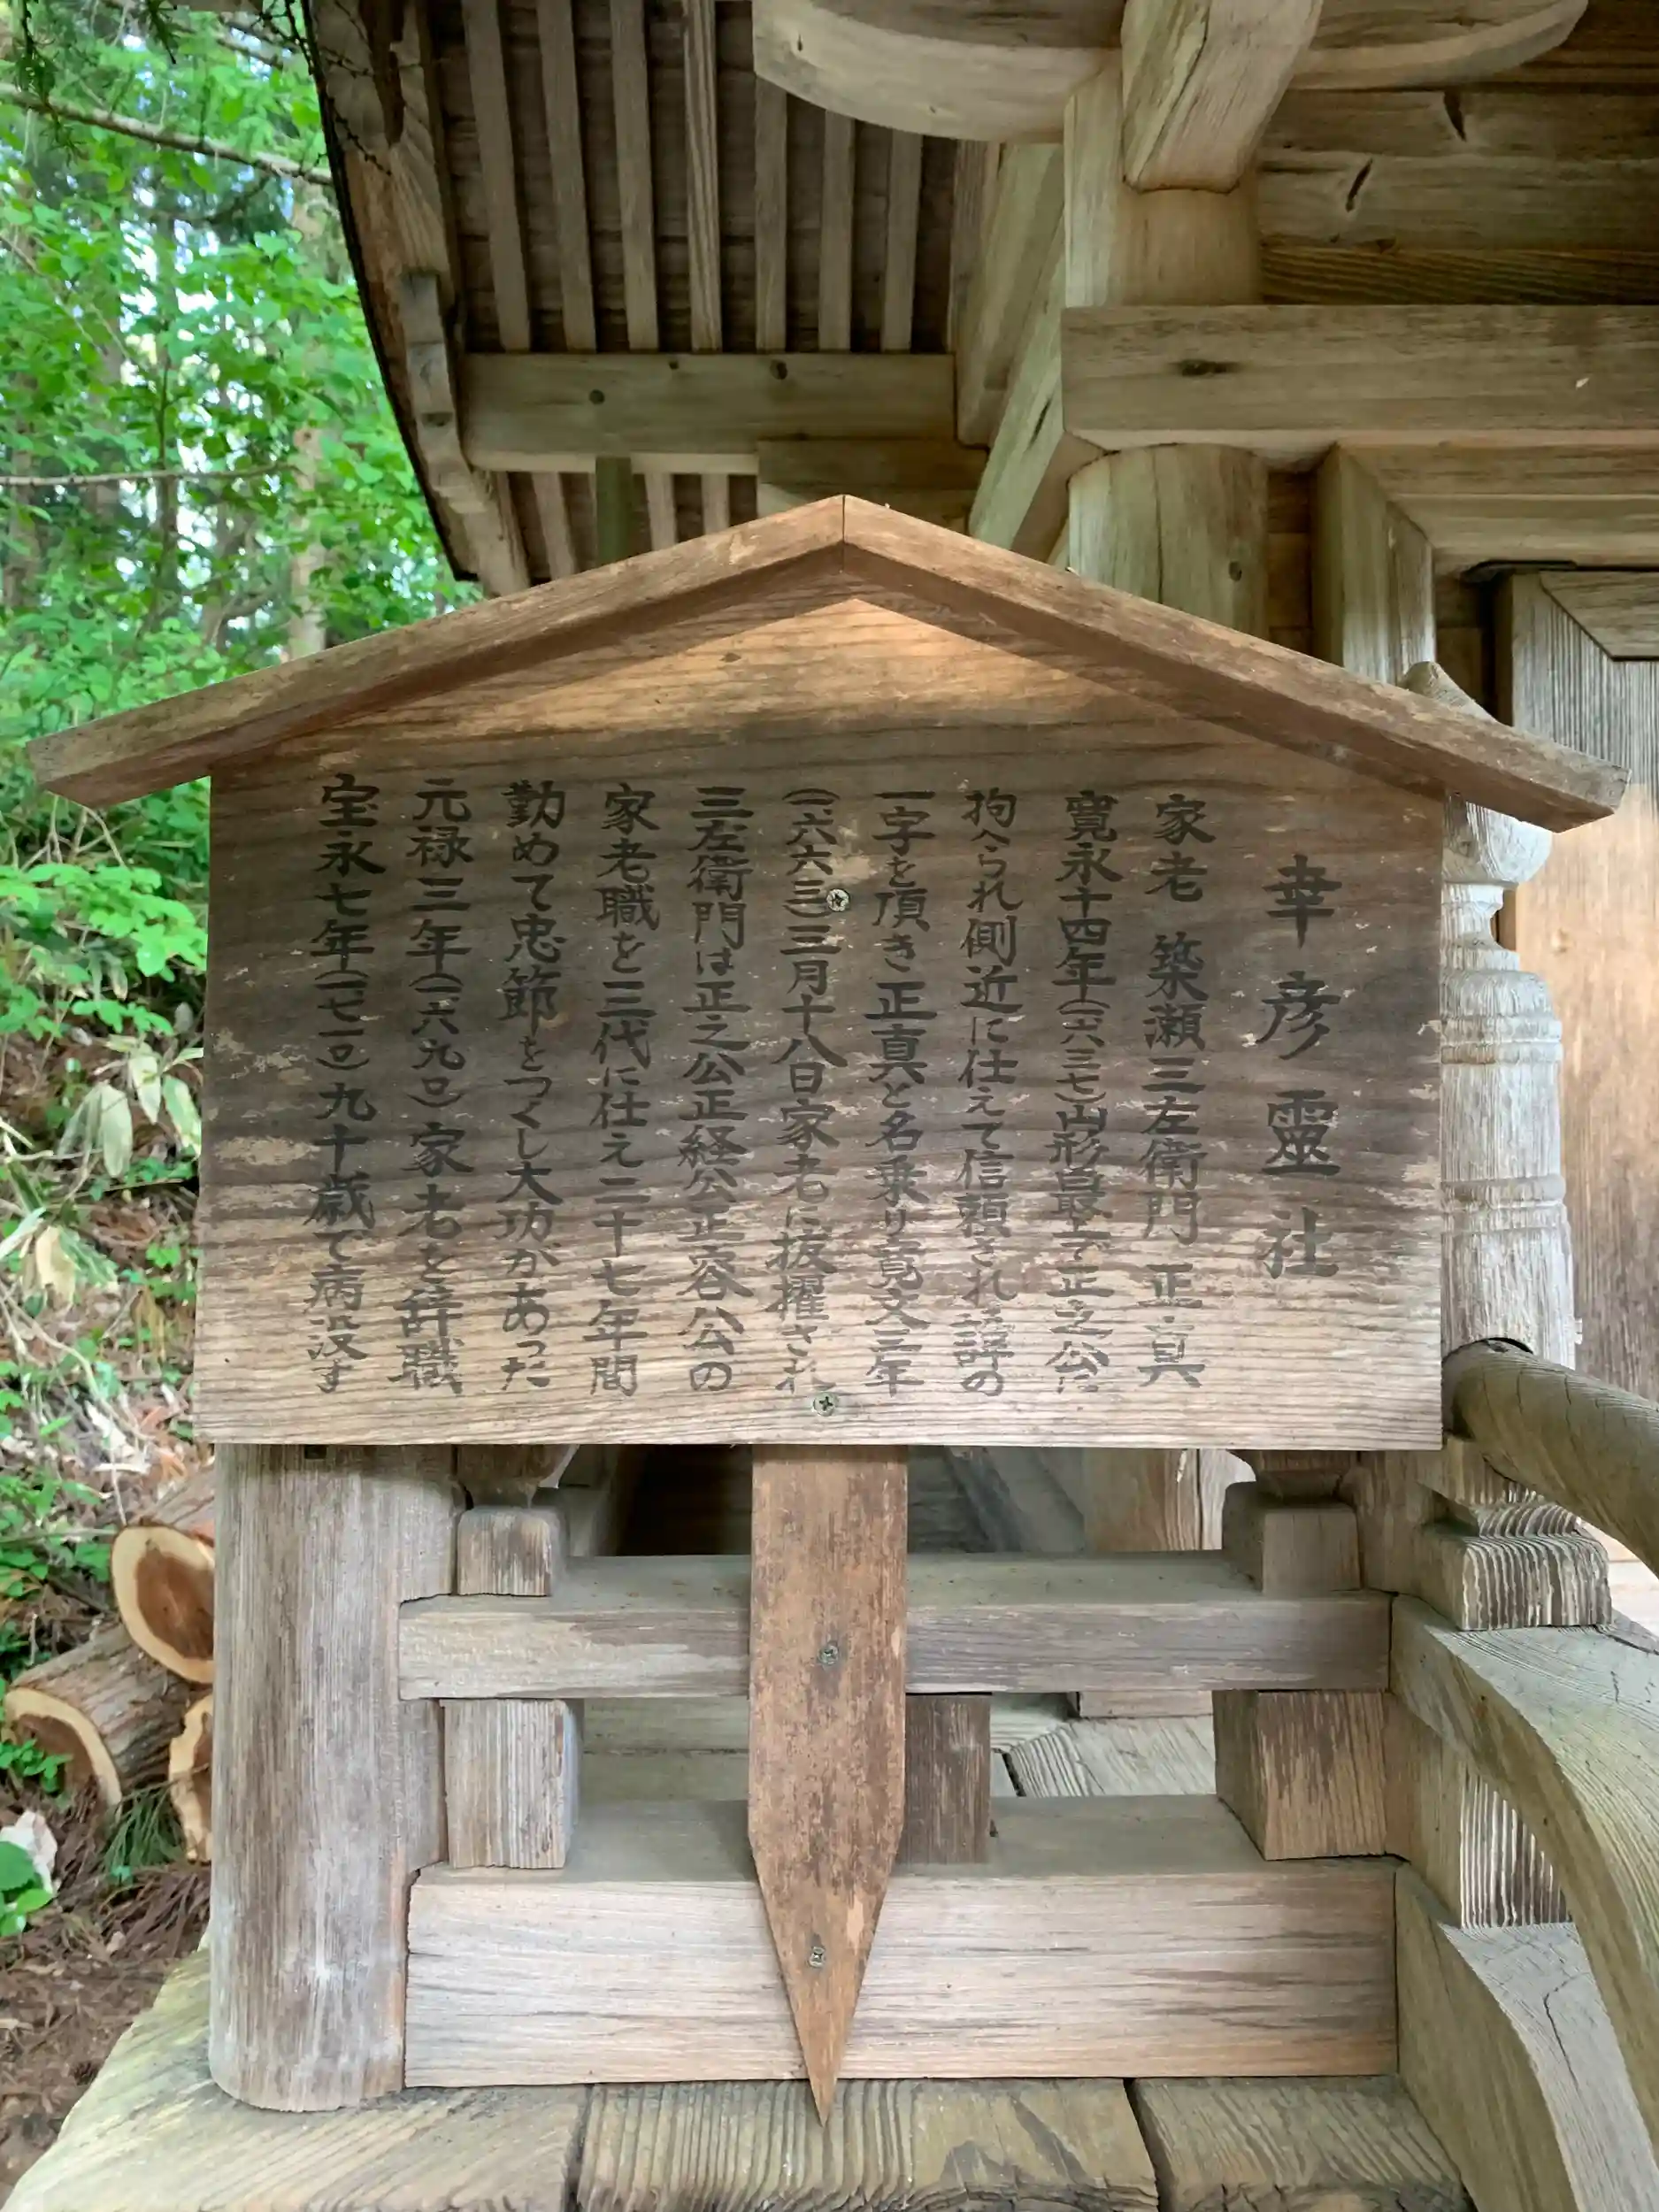 幸彦靈社
家老 築瀬三左衛門 正真
寛永十四年(一六三七)山形最上で正之公に
拘へられ側近に仕えて信頼され諱の
一字を頂き正真と名乗り寛文三年
(一六六三)三月十八日家老に抜擢され
三左衛門は正之公正経公正容公の
家老職を三代に仕え二十七年間
勤めて忠節をつくし大功があった
元禄三年(一六九〇)家老を辞職
宝永七年(一七一〇)九十歳で病没す